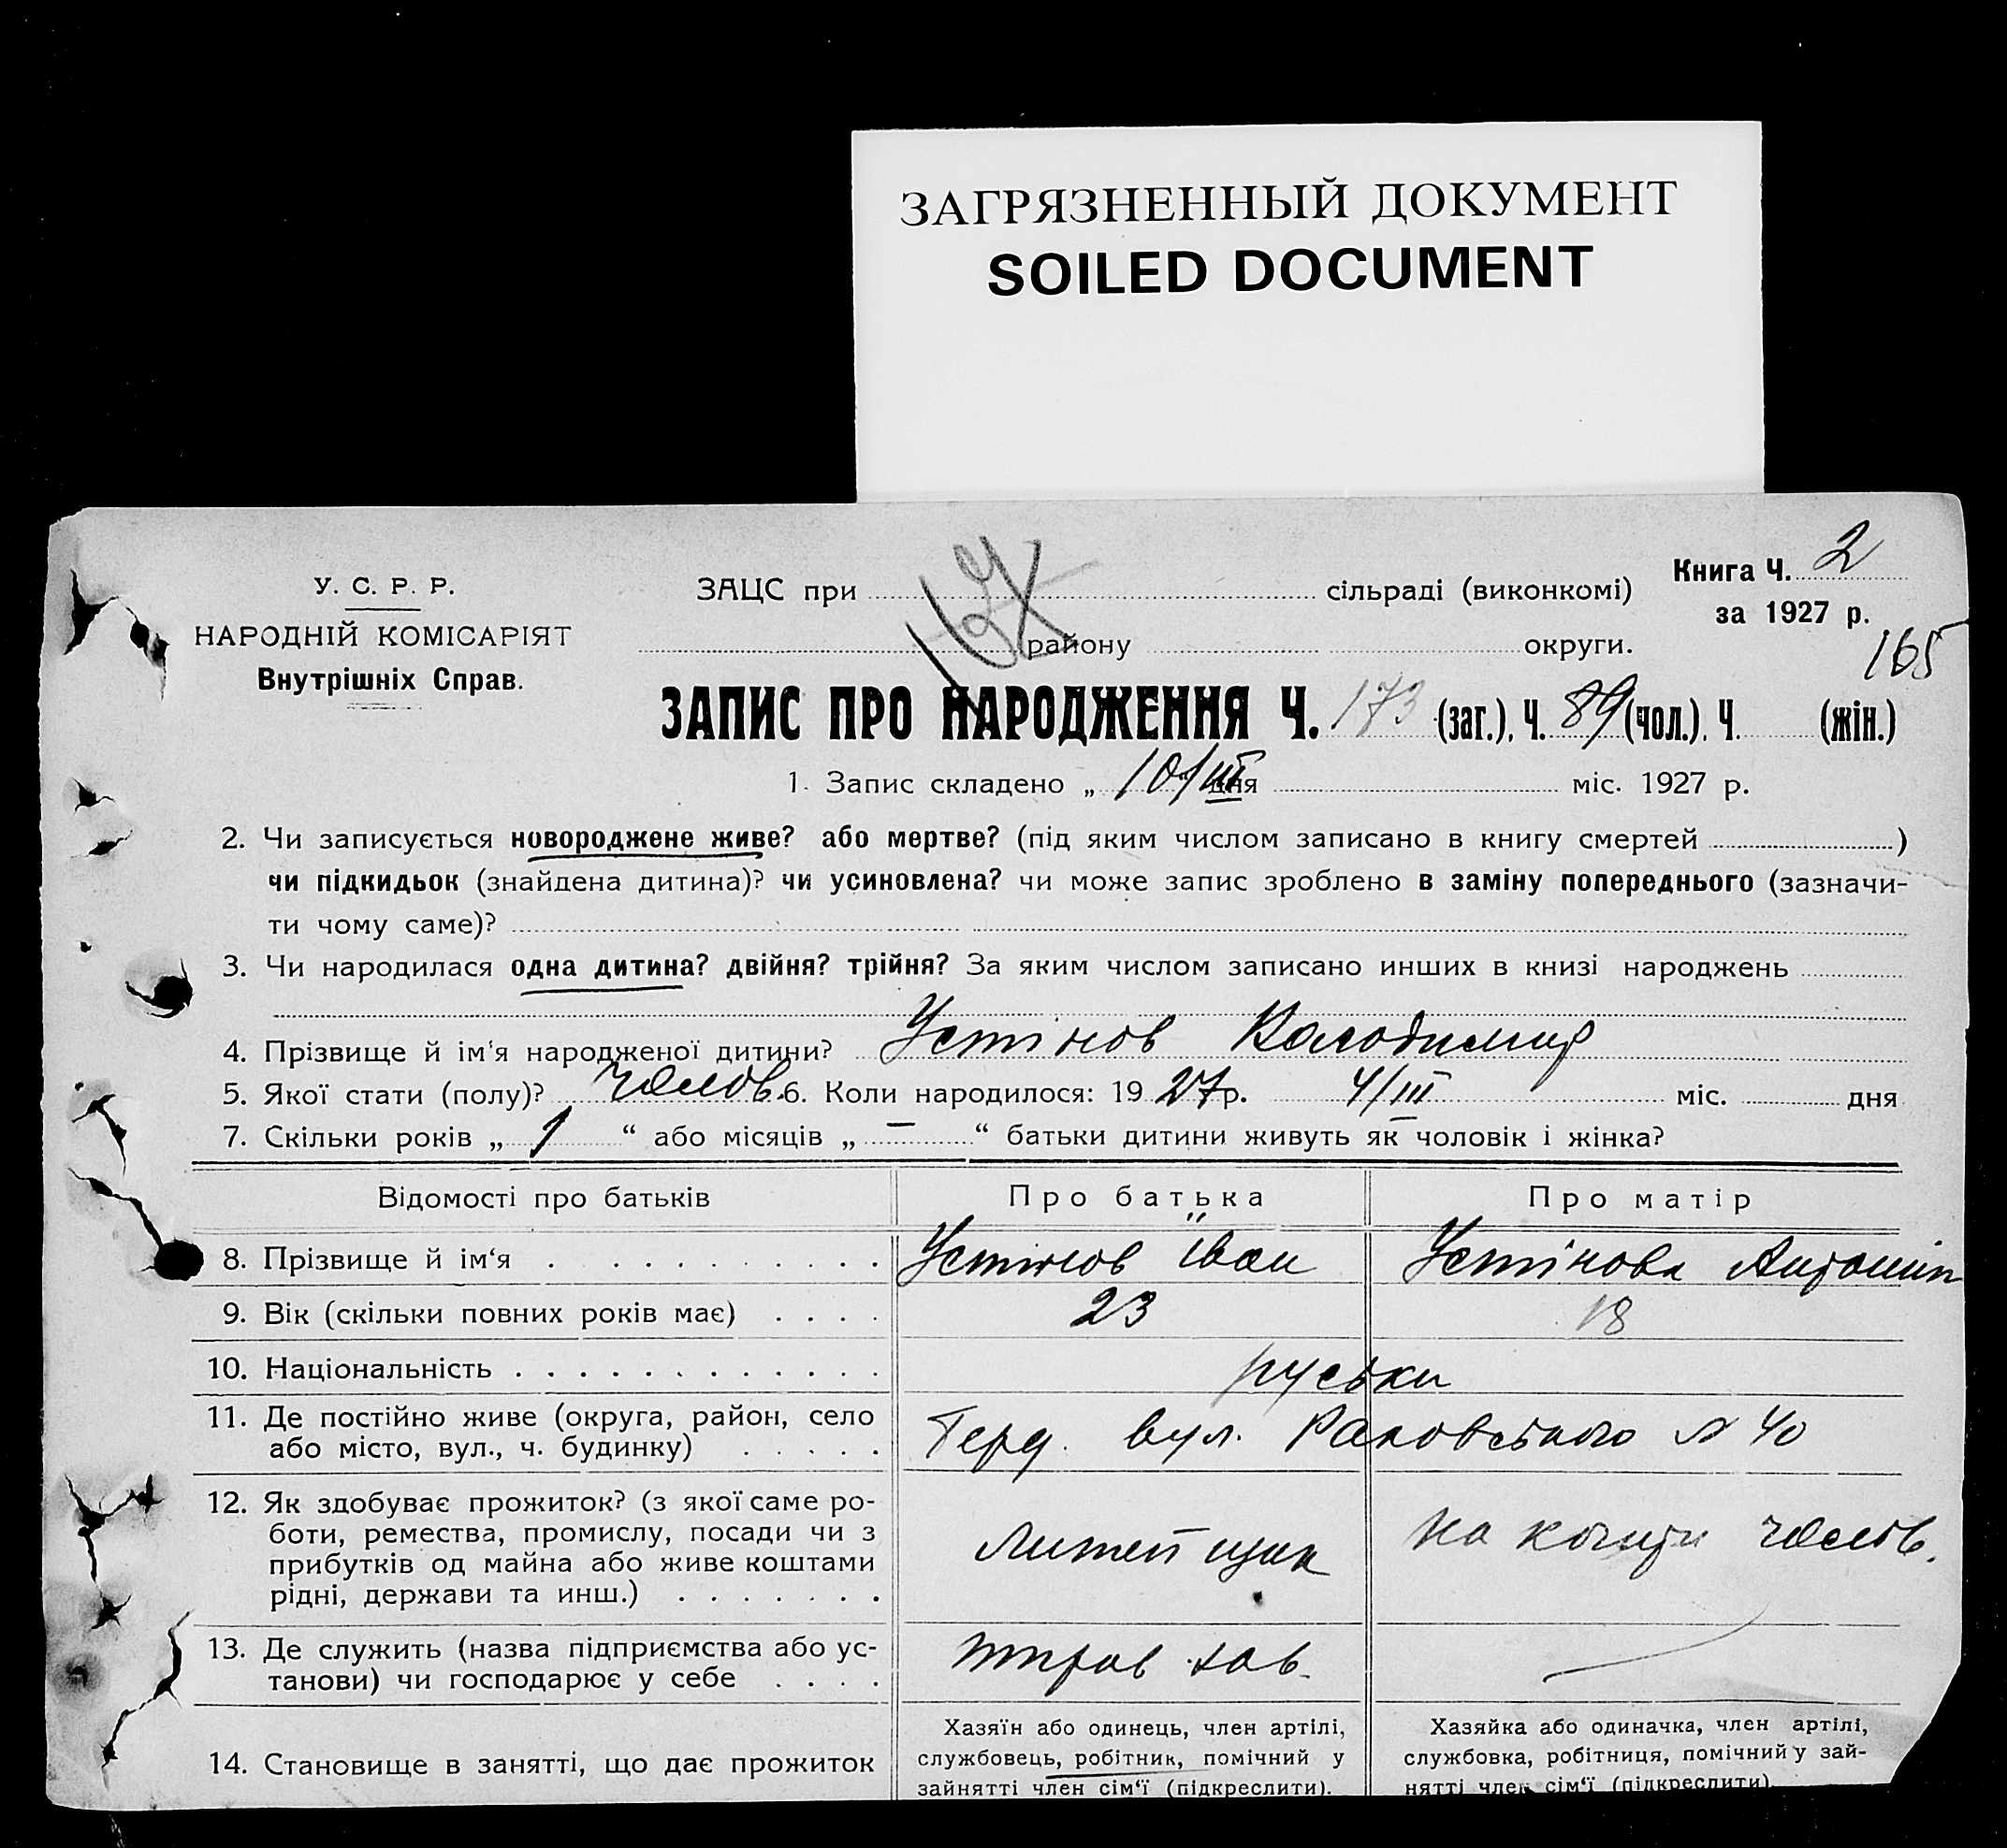 ЗАГРЯЗНЕННЫЙ ДОКУМЕНТ
SOILED DOCUMENT
У. С. Р. Р.
НАРОДНІЙ КОМІСАРІЯТ
Внутрішніх Справ.
ЗАЦС при сільраді (виконкомі)
району округи.
Книга Ч. 2
за 1927 р.
165
ЗАПИС ПРО НАРОДЖЕННЯ Ч. 173 (заг.), Ч. 89 (чол.), Ч. (жін.)
1. Запис складено „ 10/III дня міс. 1927 р.
2. Чи записується новороджене живе? або мертве? (під яким числом записано в книгу смертей )
чи підкидьок (знайдена дитина)? чи усиновлена? чи може запис зроблено в заміну попереднього (зазначи-
ти чому саме)?
3. Чи народилася одна дитина? двійня? трійня? За яким числом записано инших в книзі народжень
4. Прізвище й ім'я народженої дитини? Устінов Володимир
5. Якої стати (полу)? чолов. 6. Коли народилося: 1927 р. 4/III міс. дня
7. Скільки років „ 1 “ або місяців „ — “ батьки дитини живуть як чоловік і жінка?
Відомості про батьків Про батька Про матір
8. Прізвище й ім‘я Устінов Іван Устінова
9. Вік (скільки повних років має) 23 18
10. Національність руськи
11. Де постійно живе (округа, район, село
або місто, вул., ч. будинку)
вул. Раковського № 40
12. Як здобуває прожиток? (з якої саме ро-
боти, ремества, промислу, посади чи з
прибутків од майна або живе коштами
рідні, держави та инш.)
на кошти чолов.
13. Де служить (назва підприємства або ус-
танови) чи господарює у себе
зав.
14. Становище в занятті, що дає прожиток
Хазяїн або одинець, член артілі,
службовець, робітник, помічний у
зайнятті член сім‘ї (підкреслити).
Хазяйка або одиначка, член артілі,
службовка, робітниця, помічний у зай-
нятті член сім‘ї (підкреслити).